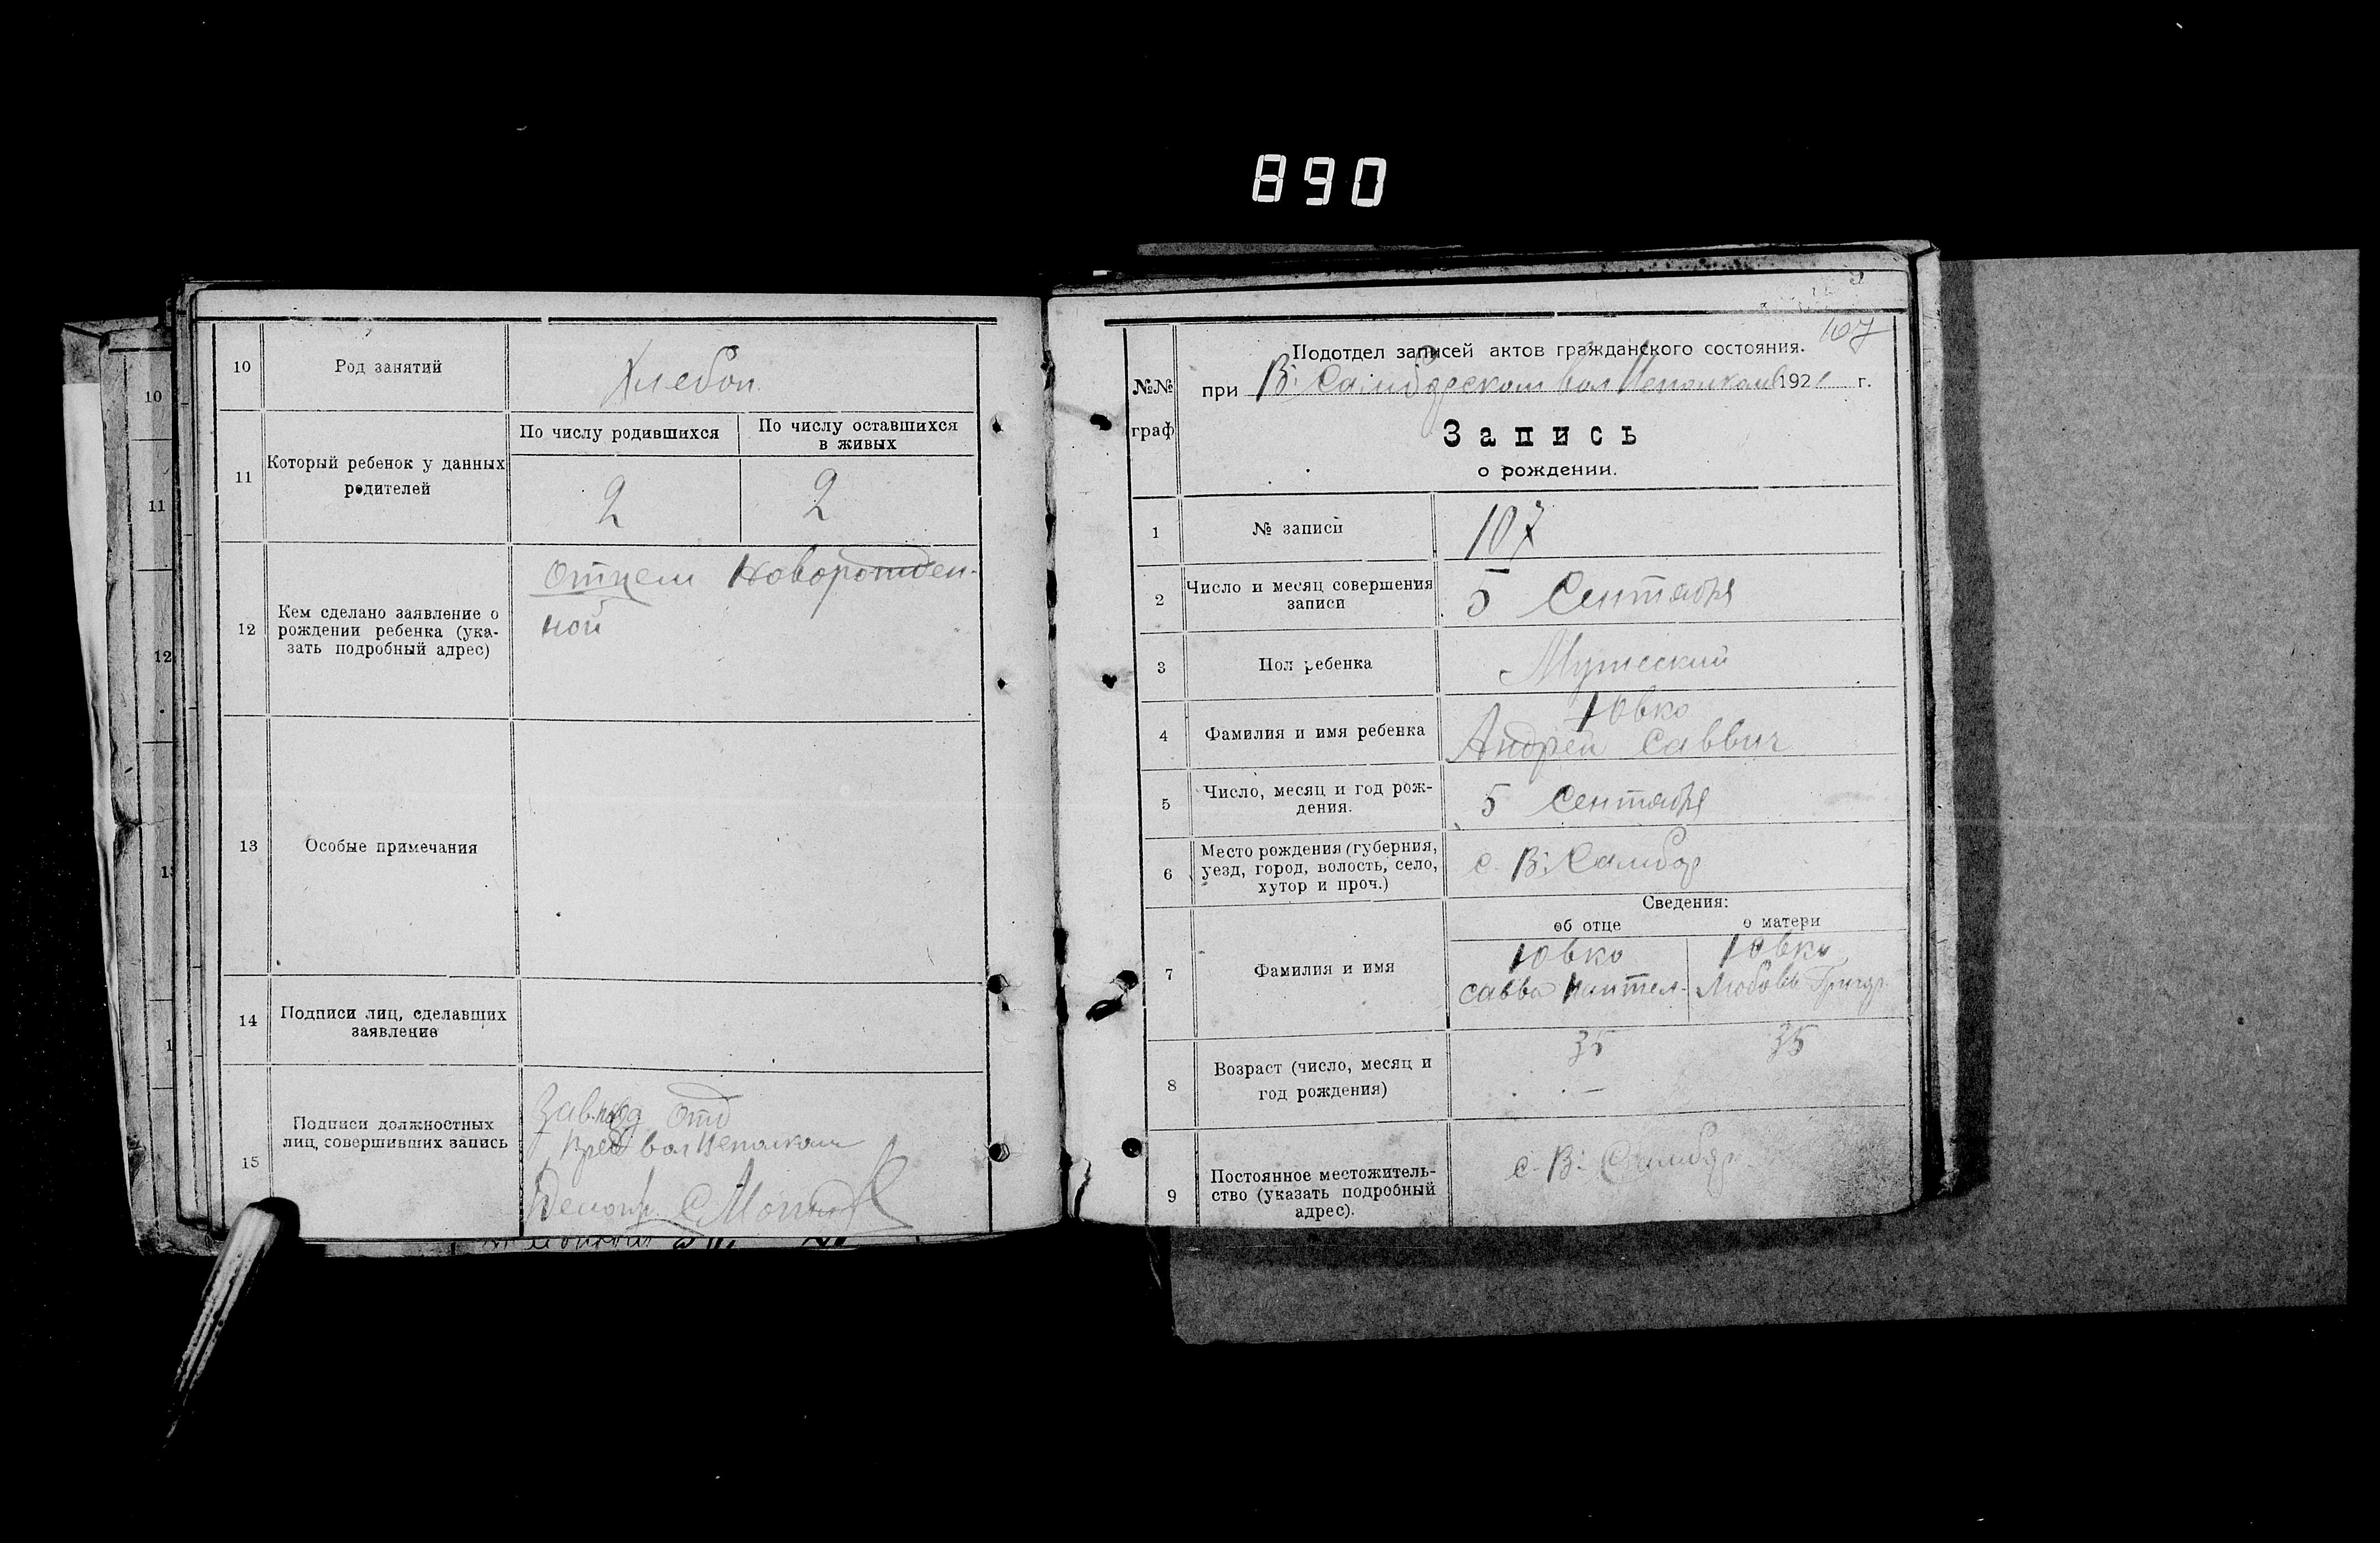 890
10
Род занятий
Хлебоп.
11
Который ребенок у данных
родителей
По числу родившихся
По числу оставшихся
в живых
2
2
12
Кем сделано заявление о
рождении ребенка (ука-
зать подробный адрес)
Отцем Новорожден-
ной
13
Особые примечания
14
Подписи лиц, сделавших
заявление
15
Подписи должностных
лиц, совершивших запись
Завподотд
Пред волисполком
Делопр.
10
11
12
107
№№
граф
Подотдел записей актов гражданского состояния.
при В. Самборском Вол Исполкоме 1921 г.
Запись
о рождении.
1
№ записи
107
2
Число и месяц совершения
записи
5 Сентября
3
Пол ребенка
Мужеский
4
Фамилия и имя ребенка
Ювко
Андрей Саввич
5
Число, месяц и год рож-
дения.
5 Сентября
6
Место рождения (губерния,
уезд, город, волость, село,
хутор и проч.)
с. В. Самбор
Сведения:
об отце
о матери
7
Фамилия и имя
Ювко
Савва
Ювко
Любовь Григор.
8
Возраст (число, месяц и
год рождения)
35
35
9
Постоянное местожитель-
ство (указать подробный
адрес).
с. В. Самбор